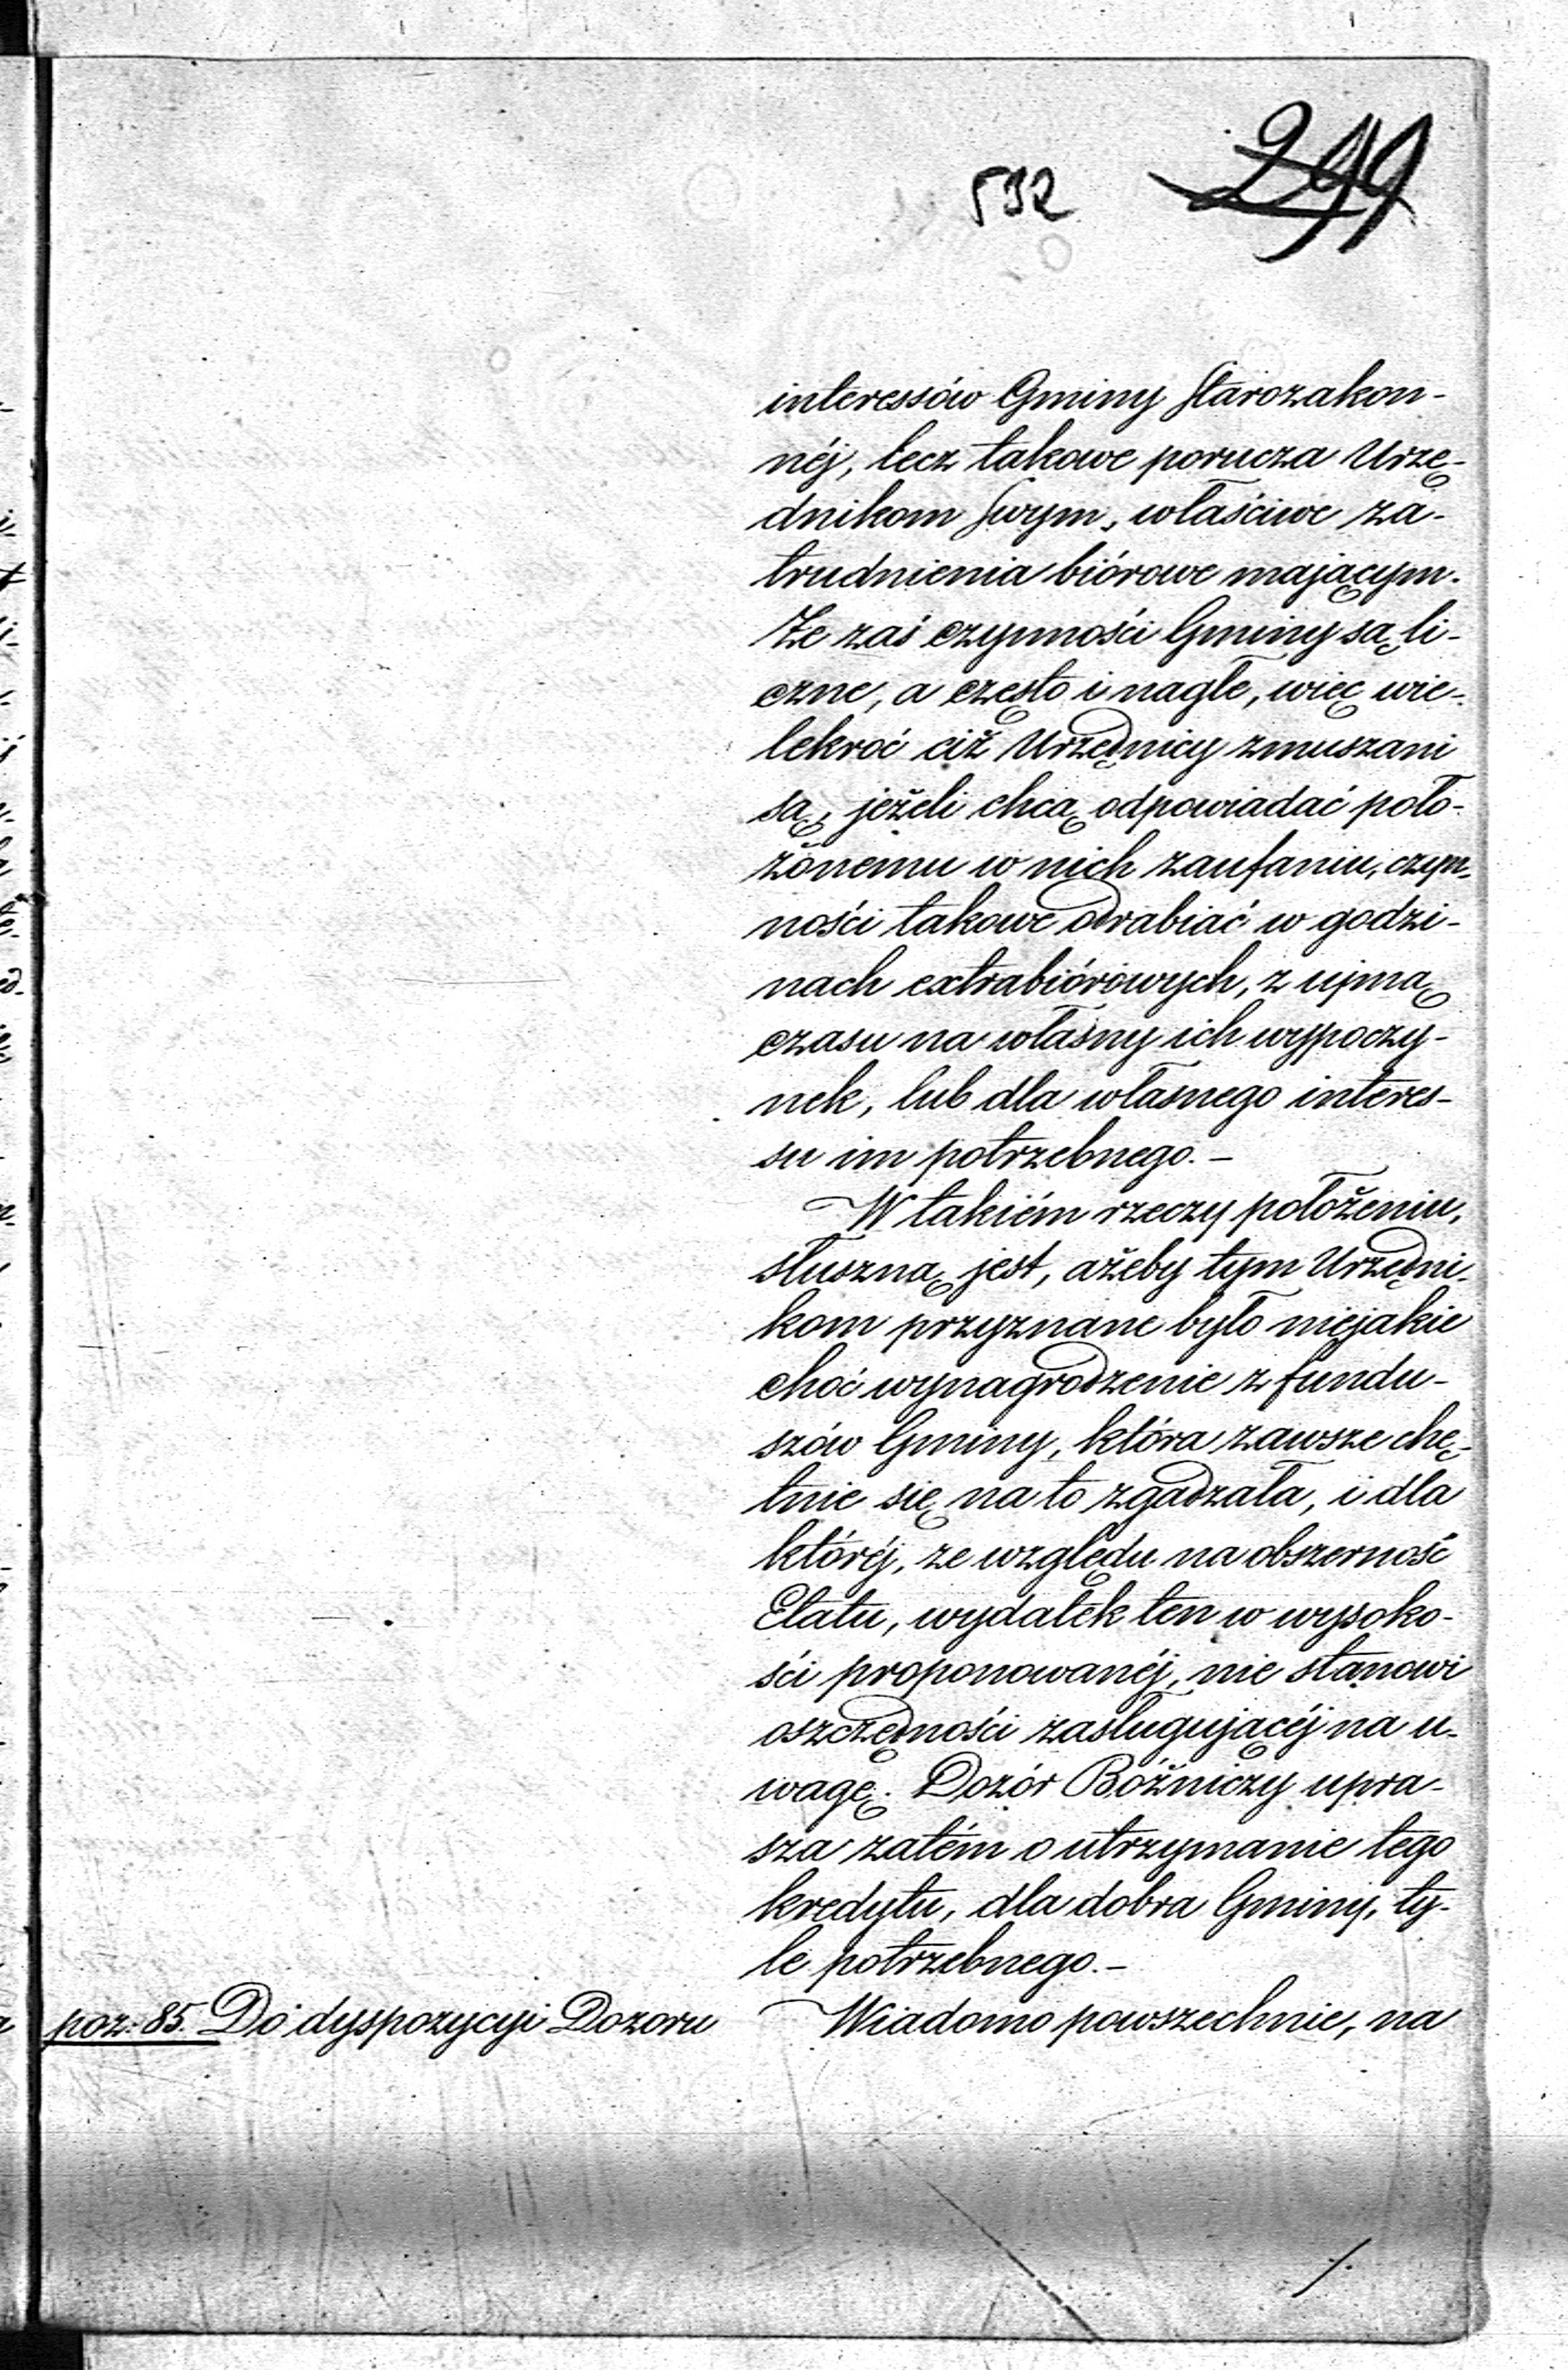 532 299
interessów Gminy Starozakon-
néj, lecz takowe porucza Urzę-
dnikom swym, właściwe za-
trudnienia biórowe mającym.
Że zaś czynności Gminy są li-
czne, a często i nagłe, więc wie-
lekroć ciż Urzędnicy zmuszani
są, jeżeli chcą odpowiadać poło-
żonemu w nich zaufaniu, czyn-
ności takowe odrabiać w godzi-
nach extrabiórowych, z ujmą
czasu na własny ich wypoczy-
nek, lub dla własnego interes-
su im potrzebnego. –
W takiém rzeczy położeniu,
słuszną jest, ażeby tym Urzędni-
kom przyznane było niejakie
choć wynagrodzenie z fundu-
szów Gminy, która zawsze chę-
tnie się na to zgadzała, i dla
któréj, ze względu na obszerność
Etatu, wydatek ten w wysoko-
ści proponowanéj, nie stanowi
oszczędności zasługującéj na u-
wagę. Dozór Bóżniczy upra-
sza zatém o utrzymanie tego
kredytu, dla dobra Gminy, ty-
le potrzebnego. –
poz: 85. Do dyspozycyi Dozoru
Wiadomo powszechnie, na